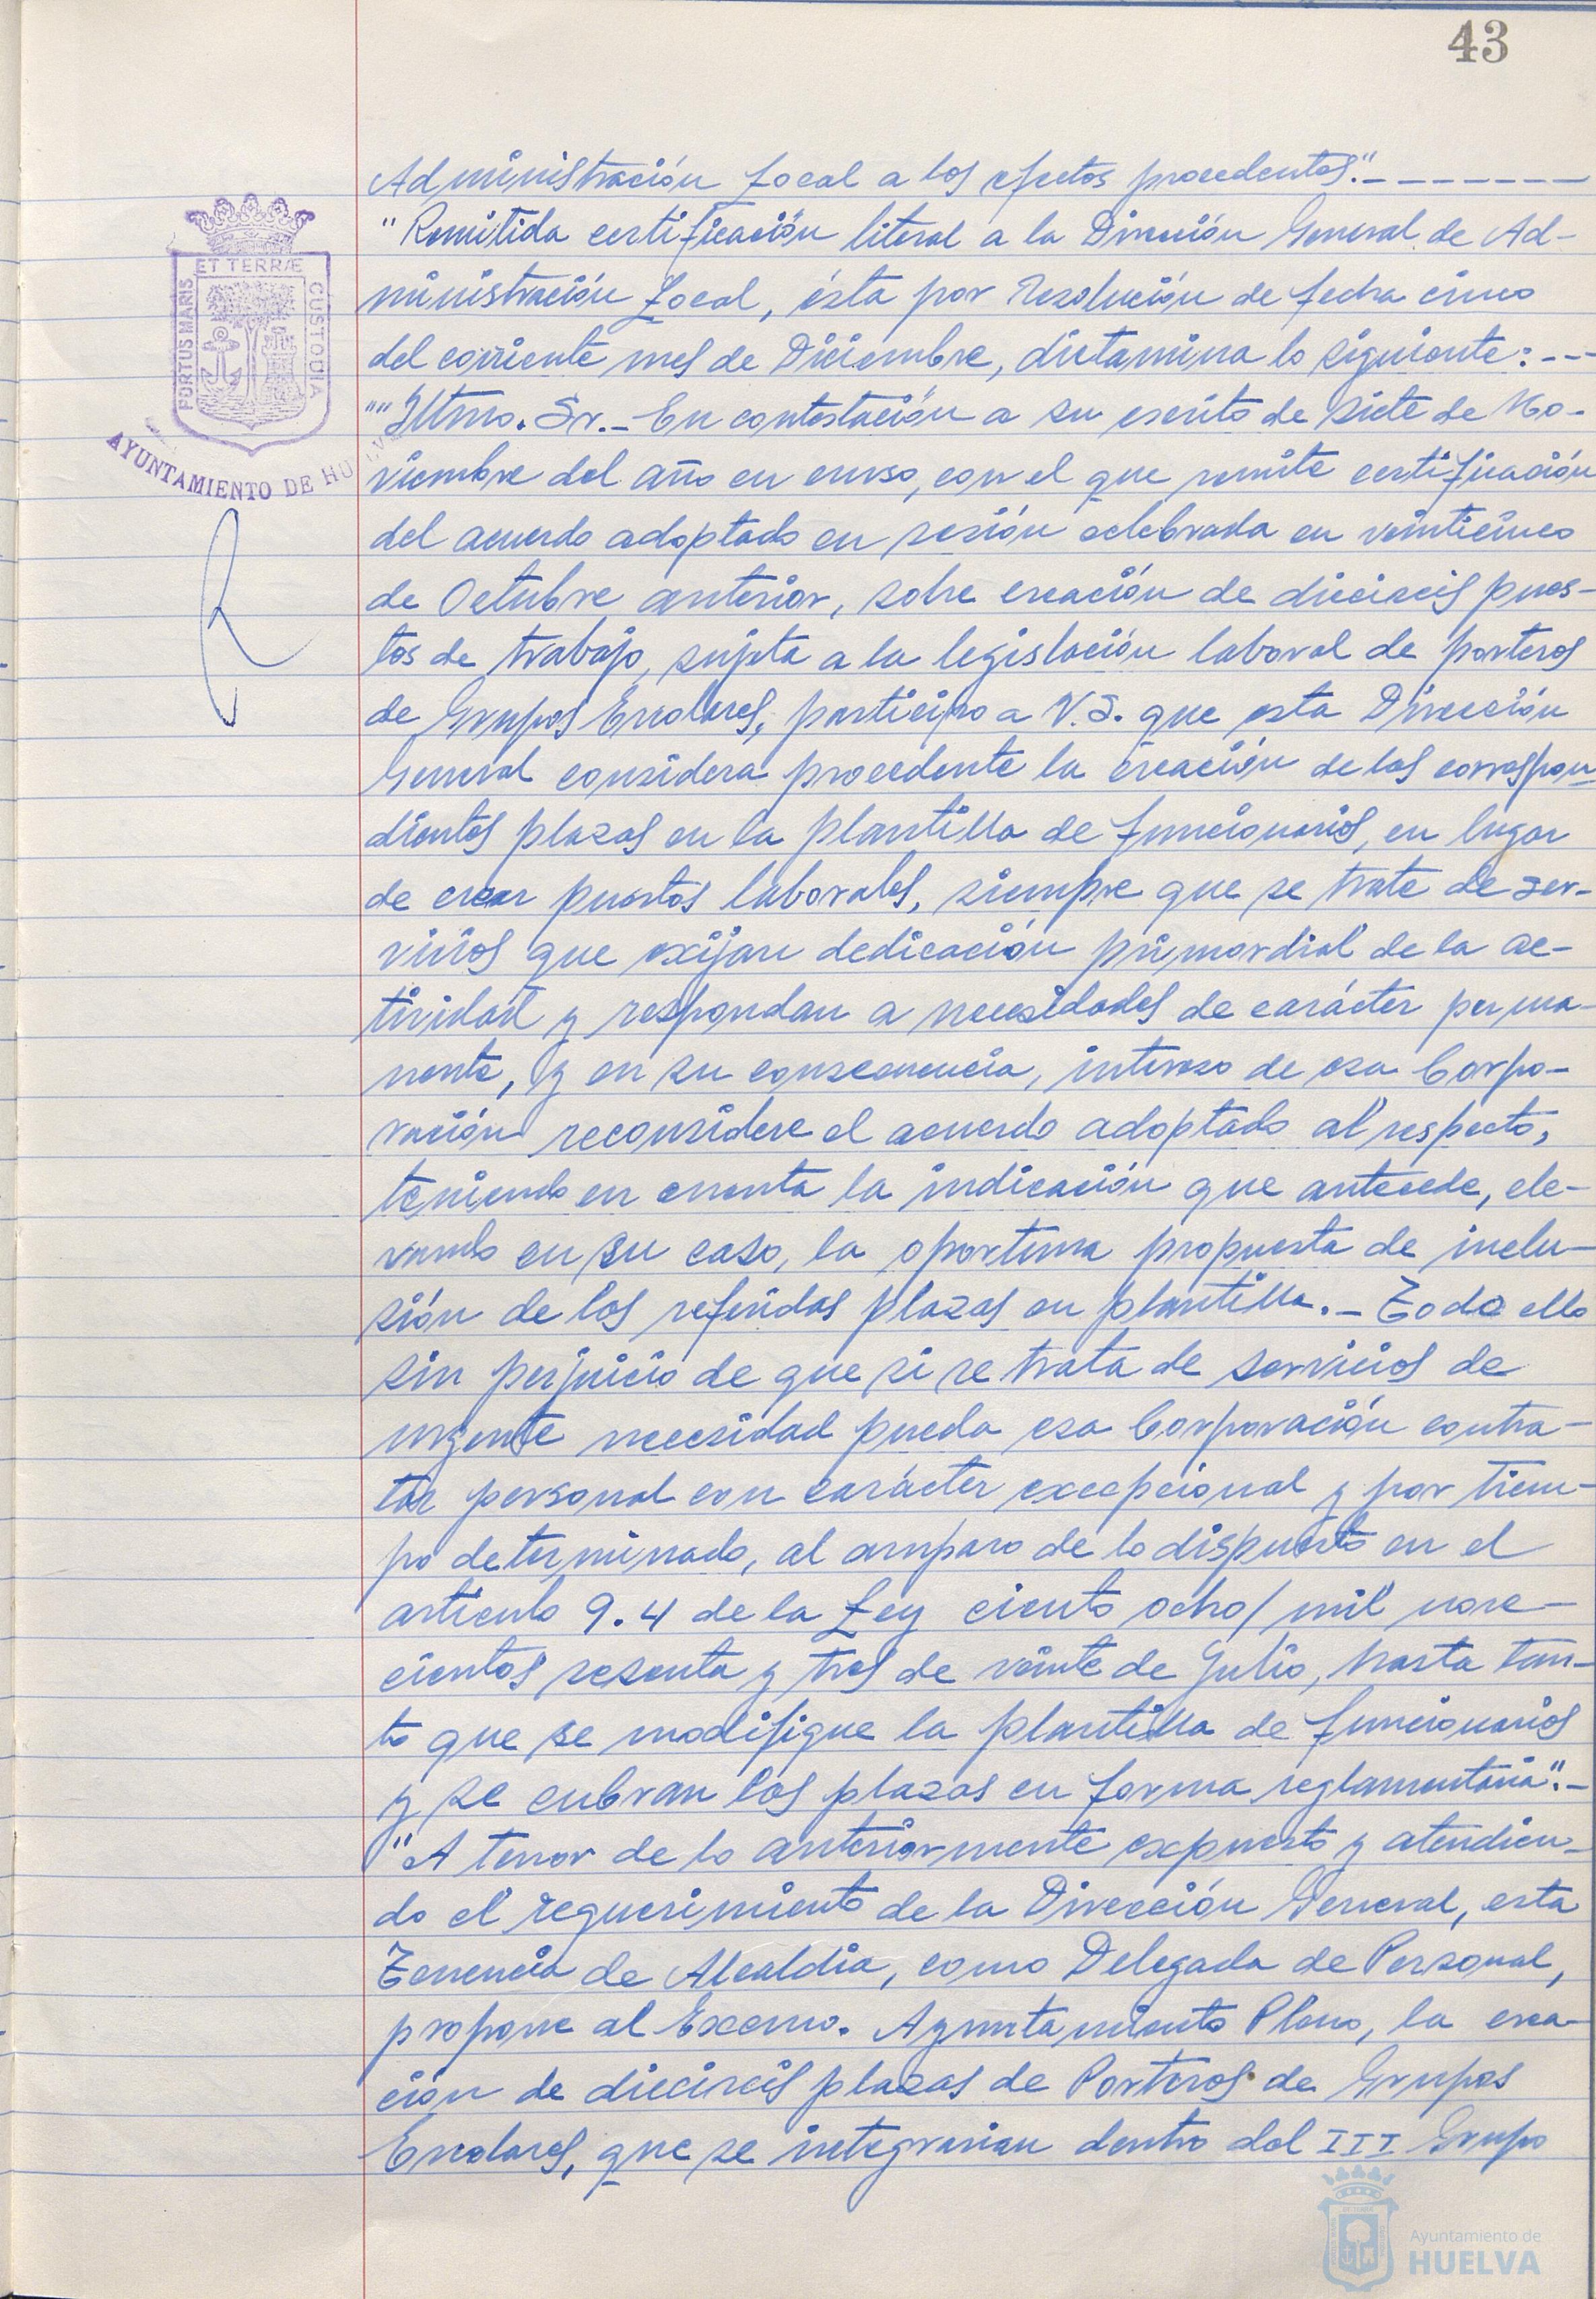 43
Administración Local a los efectos procedentes".-------
"Remitida certificación literal a la Dirección General de Ad-
ministración Local, ésta por Resolución de fecha cinco
del corriente mes de Diciembre, dictamina lo siguiente:---
""Iltmo. Sr.- En contestación a su escrito de siete de No-
viembre del año en curso, con el que remite certificación
del acuerdo adoptado en sesión celebrada en veinticinco
de Octubre anterior, sobre creación de dieciseis pues-
tos de trabajo, sujeta a la legislación laboral de porteros
de Grupos Escolares, participo a V.S. que esta Dirección
General considera procedente la creación de las correspon-
dientes plazas en la plantilla de funcionarios, en lugar
de crear puestos laborales, siempre que se trate de ser-
vicios que exijan dedicación primordial de la ac-
tividad y respondan a necesidades de carácter perma-
nente, y en su consecuencia, intereso de esa Corpo-
ración reconsidere el acuerdo adoptado al respecto,
teniendo en cuenta la indicación que antecede, ele-
vando en su caso, la oportuna propuesta de inclu-
sión de las referidas plazas en plantilla.- Todo ello
sin perjuicio de que si se trata de servicios de
urgente necesidad pueda esa Corporación contra-
tar personal con carácter excepcional y por tiem-
po determinado, al amparo de lo dispuesto en el
artículo 9.4 de la Ley ciento ocho/mil nove-
cientos sesenta y tres de veinte de Julio, hasta tan-
to que se modifique la plantilla de funcionarios
y se cubran las plazas en forma reglamentaria".-
"A tenor de lo anteriormente expuesto y atendien-
do el requerimiento de la Dirección General, esta
Tenencia de Alcaldia, como Delegada de Personal,
propone al Excmo. Ayuntamiento Pleno, la crea-
ción de dieciseis plazas de Porteros de Grupos
Escolares, que se integrarian dentro del III Grupo
PORTUS MARIS ET TERRÆ CUSTODIA
AYUNTAMIENTO DE HUELVA
Ayuntamiento de
HUELVA